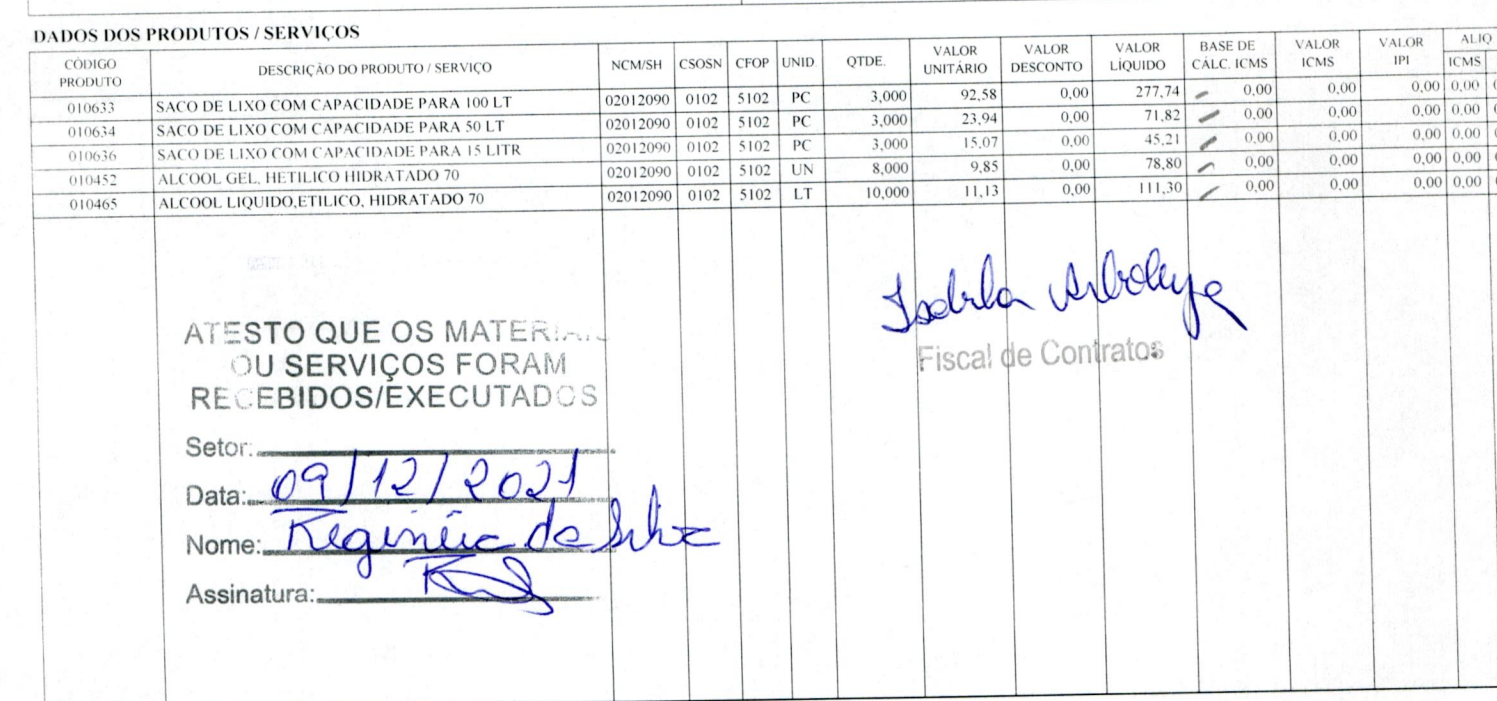 DADOS DOS PRODUTOS / SERVIÇOS
CÓDIGO PRODUTO DESCRIÇÃO DO PRODUTO / SERVIÇO NCM/SH CSOSN CFOP UNID QTDE. VALOR UNITÁRIO VALOR DESCONTO VALOR LÍQUIDO BASE DE CÁLC. ICMS VALOR ICMS VALOR IPI ALIQ ICMS
010633 SACO DE LIXO COM CAPACIDADE PARA 100 LT 02012090 0102 5102 PC 3,000 92,58 0,00 277,74 0,00 0,00 0,00 0,00
010634 SACO DE LIXO COM CAPACIDADE PARA 50 LT 02012090 0102 5102 PC 3,000 23,94 0,00 71,82 0,00 0,00 0,00 0,00
010636 SACO DE LIXO COM CAPACIDADE PARA 15 LITR 02012090 0102 5102 PC 3,000 15,07 0,00 45,21 0,00 0,00 0,00 0,00
010452 ALCOOL GEL, HETILICO HIDRATADO 70 02012090 0102 5102 UN 8,000 9,85 0,00 78,80 0,00 0,00 0,00 0,00
010465 ALCOOL LIQUIDO,ETILICO, HIDRATADO 70 02012090 0102 5102 LT 10,000 11,13 0,00 111,30 0,00 0,00 0,00 0,00
Fiscal de Contratos
ATESTO QUE OS MATERIAIS
OU SERVIÇOS FORAM
RECEBIDOS/EXECUTADOS
Setor:
Data: 09/12/2021
Nome: da Silva
Assinatura: